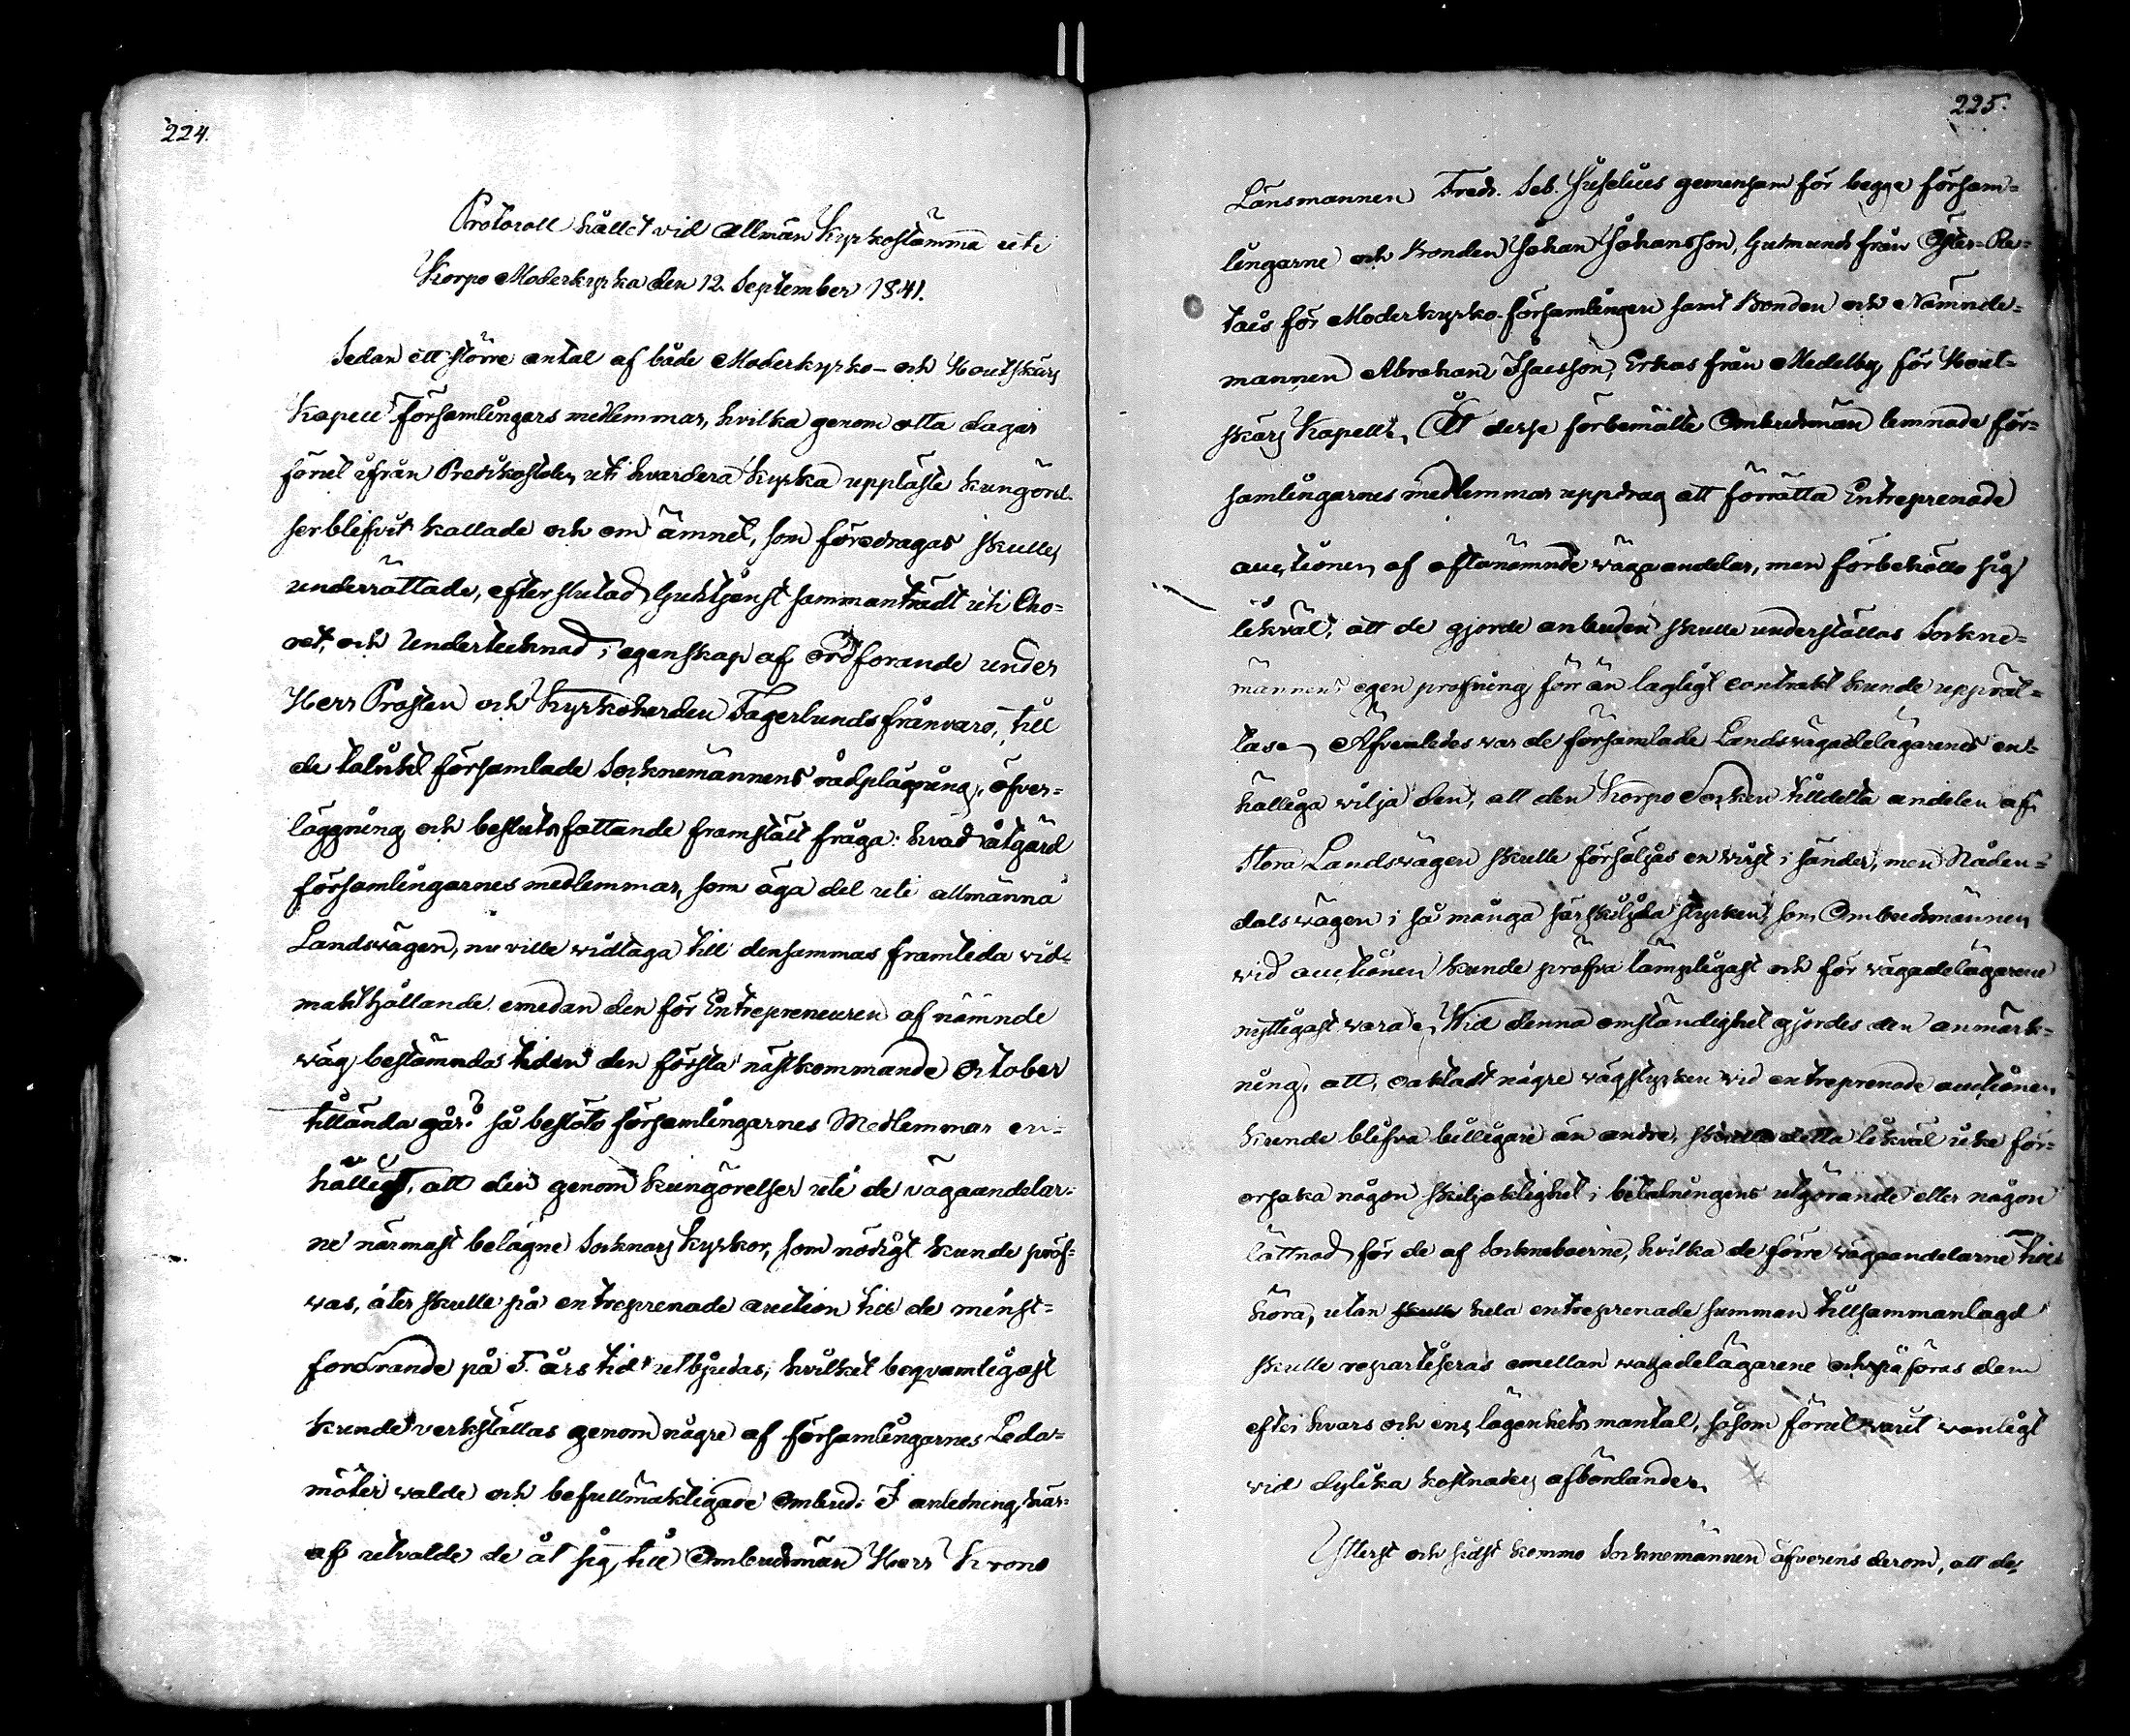 224.
Protocoll hållet vid allmän Kyrkostämma uti
Korpo Moderkyrka den 12. September 1841.
Sedan ett större antal af både Moderkyrko- och Houtskärs
Kapell Församlingars medlemmar, hvilka genom åtta dagar
förut ifrån Predikostolen uti hvardera kyrka uppläste kungörel-
ser blifvit kallade och om ämnet, som föredragas skulle,
underrättade, efter slutad Gudstjenst sammanträdt uti Cho-
ret, och Undertecknad i egenskap af ordförande under
Herr Prosten och Kyrkoherden Fagerlunds frånvaro, till
de talrikt församlade Socknemännens rådplägning, öfver-
läggning och besluts fattande framstält fråga: hvad åtgärd
församlingarnes medlemmar, som äga del uti allmänna
Landsvägen, nu ville widtaga till densammas framtida vid-
makthållande, emedan den för Entrepreneuren af nämnde
wäg bestämnda tiden den första nästkommande October
tilländagår? så beslöto församlingarnes Medlemmar en-
hälligt, att den genom kungörelser uti de vägaandelar-
ne närmast belägne Socknars Kyrkor, som nödigt kunde pröf-
was, åter skulle på entreprenade auction till de minst-
fordrande på 5. års tid utbjudas; hvilket beqvämligast
kunde verkställas genom någre af församlingarnes Leda-
möter walde och befullmäktigade ombud. I anledning här-
af utvalde de åt sig till Ombudsmän Herr Krono
225.
Länsmannen Fredr. Seb. Juselius gemensam för begge försam-
lingarne och Bonden Johan Johansson, Gudmunds från Öster-Re-
tais för Moderkyrko-församlingen samt Bonden och Nämnde-
mannen Abraham Isacsson, Erkas från Medelby för Hout-
skärs Kapell. Åt desse förbemälte Ombudsmän lemnade för-
samlingarnes medlemmar uppdrag att förrätta Entreprenade
auctionen af oftanämnde vägaandelar, men förbehöllo sig
likväl, att de gjorde anbuden skulle underställas Sockne-
männens egen profning förr än lagligt contrakt kunde upprät-
tas. Äfvenledes war de församlade Landsvägadelägarenes en-
hälliga wilja den, att den Korpo Socken tilldelta andelen af
stora Landsvägen skulle försäljas en virst i sänder, men Nåden-
dals vägen i så många särskiljda stycken, som Ombudsmännen
wid auctionen kunde profva lämpligast och för vägadelägarene
nyttigast wara. Wid denna omständighet gjordes den anmärk-
ning, att, oaktadt någre vägstycken wid entreprenade auctionen
kunde blifva billigare än andre, skulle detta likväl icke för-
orsaka någon skiljaktighet i betalningens utgörande eller någon
lättnad för de af Socknaboerne, hvilka de förre vägaandelarne till-
höra, utan skulle hela entreprenade summan tillsammanlagd
skulle repartiseras emellan vägadelägarene och påföras dem
efter hvars och ens lägenhets mantal, såsom förut varit vanligt
vid dylika kostnaders afbördande.
Ytterst och sidst kommo Socknemännen öfverens derom, att de,